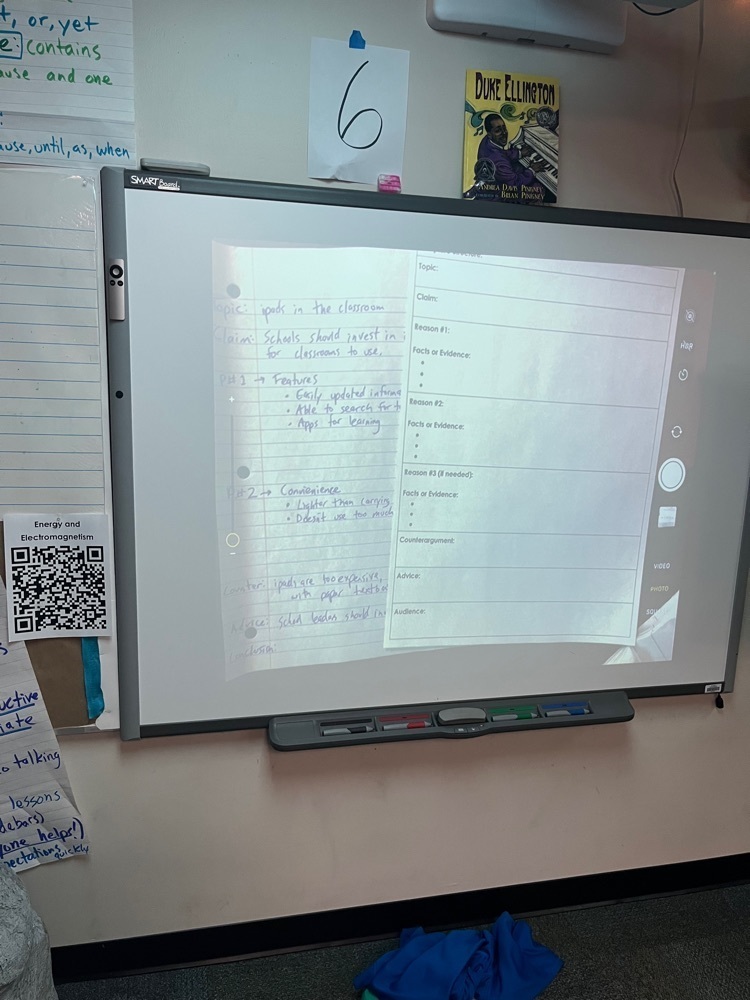 t, or, yet
e: contains
ause and one
:
ause, until, as, when
6
DUKE ELLINGTON
ANDREA DAVIS PINKNEY
BRIAN PINKNEY
SMART Board
opic: ipads in the classroom
Claim: Schools should invest in i
for classrooms to use.
1 → Features
• Easily updated informa
• Able to search for t
• Apps for learning
2 → Convenience
• Lighter than carrying
• Doesn't use too much
ipads are too expensive,
with paper
Advice: School leaders should in
Conclusion:
Topic:
Claim:
Reason #1:
Facts or Evidence:
•
•
•
Reason #2:
Facts or Evidence:
•
•
•
Reason #3 (if needed):
Facts or Evidence:
•
•
•
Counterargument:
Advice:
Audience:
VIDEO
PHOTO
SQU
Energy and
Electromagnetism
s
uctive
iate
o talking
lessons
debars)
yone helps!)
pectations quickly